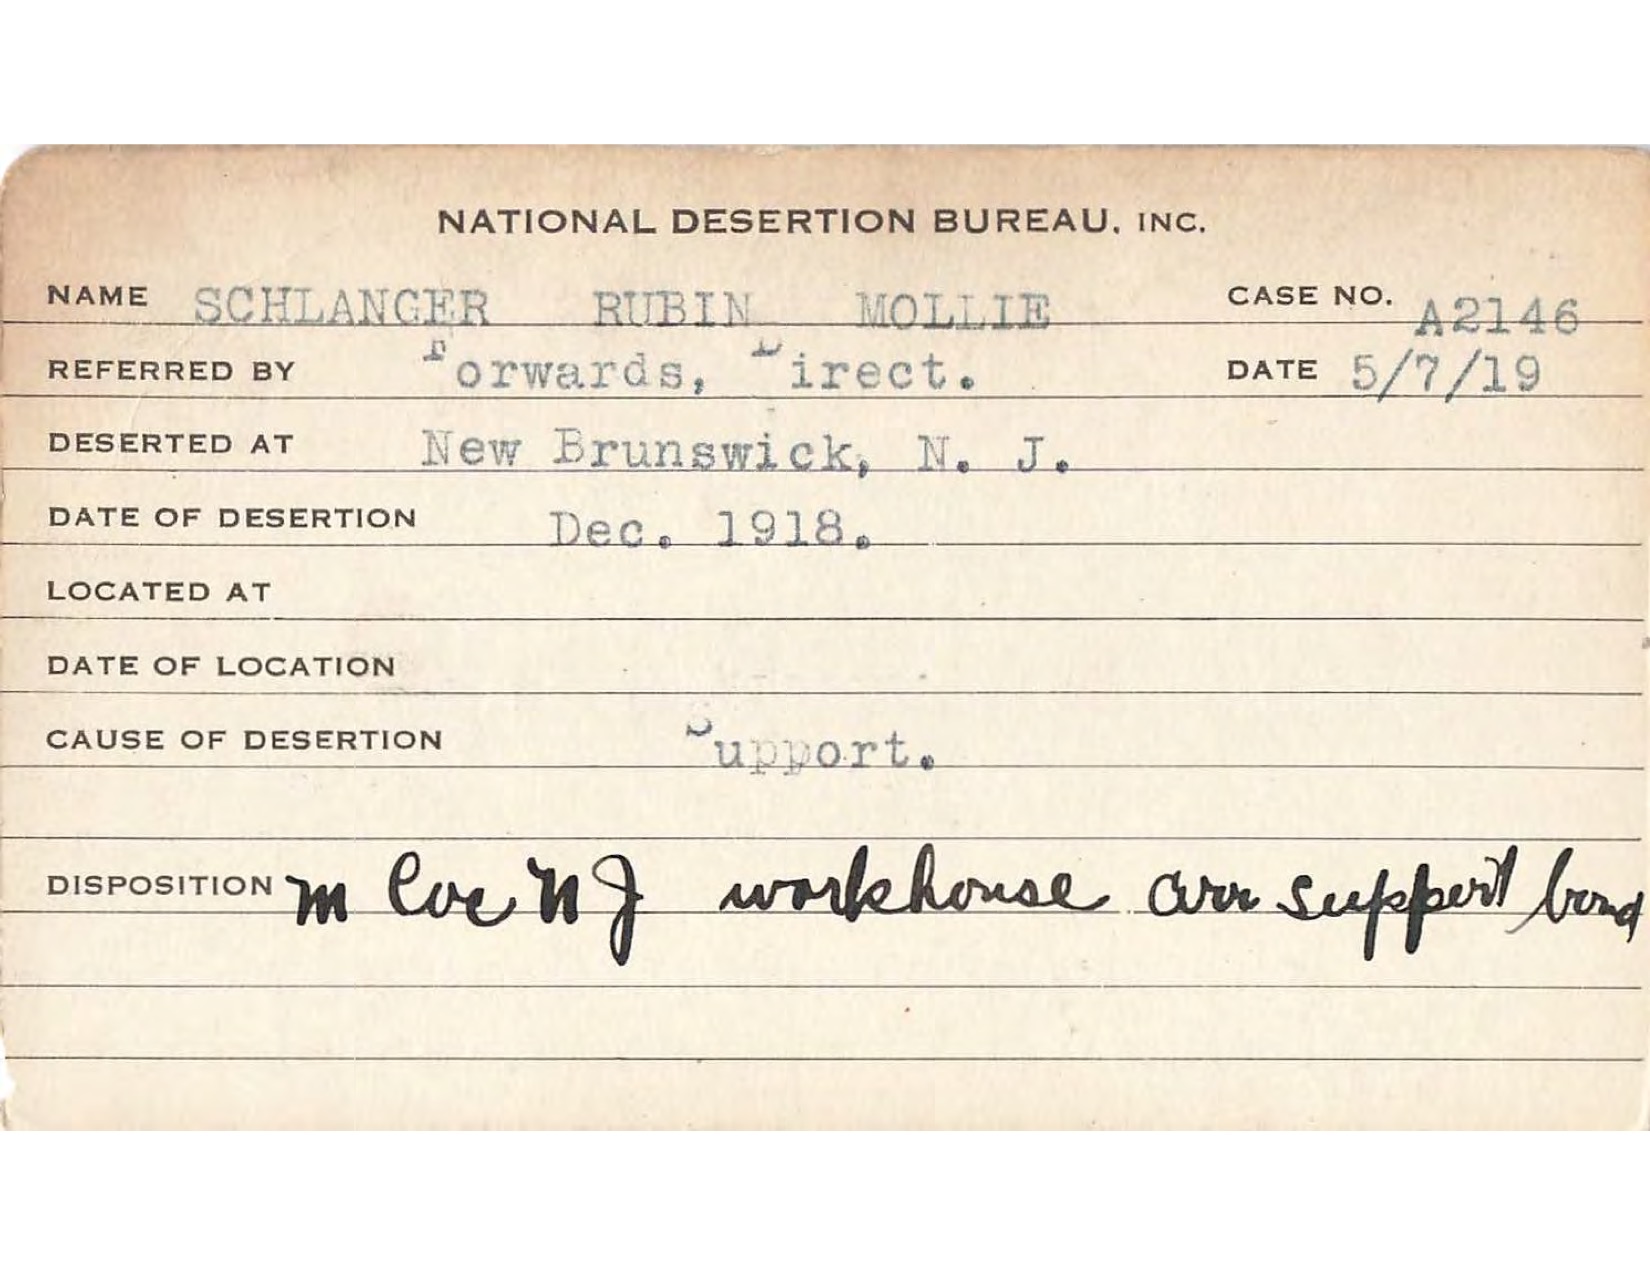 NATIONAL DESERTION BUREAU, INC.
NAME SCHLANGER RUBIN MOLLIE CASE NO. A2146
REFERRED BY Forwards, Direct. DATE 5/7/19
DESERTED AT New Brunswick, N. J.
DATE OF DESERTION Dec. 1918.
LOCATED AT
DATE OF LOCATION
CAUSE OF DESERTION Support.
DISPOSITION M Coe NJ workhouse arr support bond